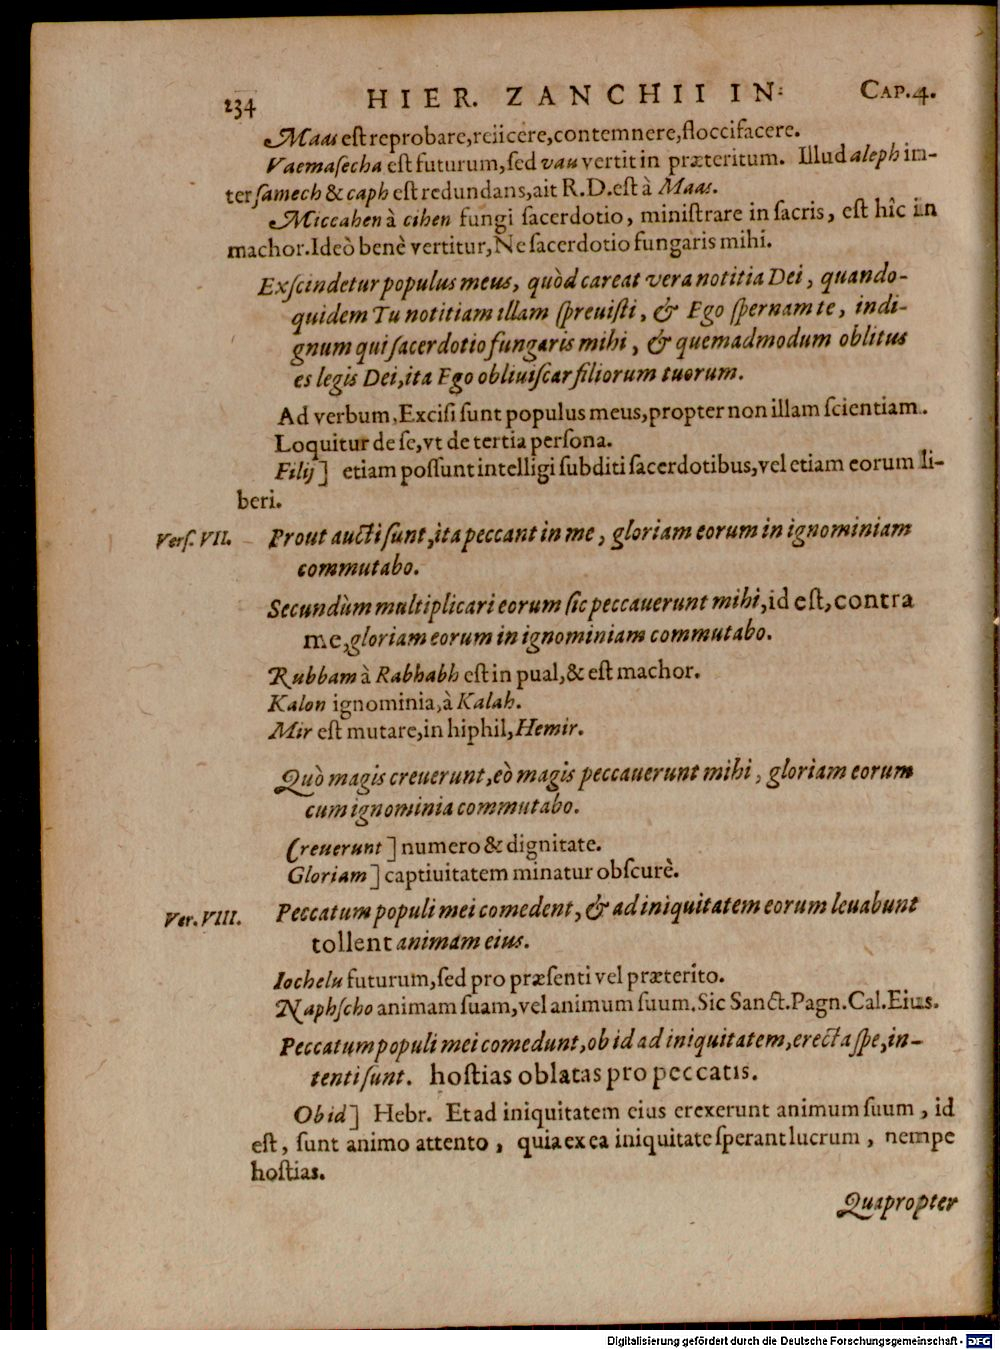 234 HIER. ZANCHII IN Cap. 4.
Maas est reprobare, reiicere, contemnere, floccifacere.
Vaemaſecha eſt futurum, ſed vau vertit in præteritum. Illud aleph in-
ter ſamech & caph eſt redundans, ait R.D. eſt à Maas.
Miccahen à cihen fungi ſacerdotio, miniſtrare in ſacris, eſt hîc in
machor. Ideò benè vertitur, Ne ſacerdotio fungaris mihi.
Exſcindetur populus meus, quòd careat vera notitia Dei, quando-
quidem Tu notitiam illam ſpreuiſti, & Ego ſpernam te, indi-
gnum qui ſacerdotio fungaris mihi, & quemadmodum oblitus
es legis Dei, ita Ego obliuiſcar filiorum tuorum.
Ad verbum, Exciſi ſunt populus meus, propter non illam ſcientiam.
Loquitur de ſe, vt de tertia perſona.
Filij] etiam poſſunt intelligi ſubditi ſacerdotibus, vel etiam eorum li-
beri.
Verſ. VII. Prout aucti ſunt, ita peccant in me, gloriam eorum in ignominiam
commutabo.
Secundùm multiplicari eorum ſic peccauerunt mihi, id eſt, contra
me, gloriam eorum in ignominiam commutabo.
Rubbam à Rabhabh eſt in pual, & eſt machor.
Kalon ignominia, à Kalah.
Mir eſt mutare, in hiphil, Hemir.
Quò magis creuerunt, eò magis peccauerunt mihi, gloriam eorum
cum ignominia commutabo.
Creuerunt] numero & dignitate.
Gloriam] captiuitatem minatur obſcurè.
Ver. VIII. Peccatum populi mei comedent, & ad iniquitatem eorum leuabunt
tollent animam eius.
Iochelu futurum, ſed pro præſenti vel præterito.
Naphſcho animam ſuam, vel animum ſuum. Sic Sanct. Pagn. Cal. Eius.
Peccatum populi mei comedunt, ob id ad iniquitatem, erecta ſpe, in-
tenti ſunt. hoſtias oblatas pro peccatis.
Ob id] Hebr. Et ad iniquitatem eius erexerunt animum ſuum, id
eſt, ſunt animo attento, quia ex ea iniquitate ſperant lucrum, nempe
hoſtias.
Quapropter
Digitalisierung gefördert durch die Deutsche Forschungsgemeinschaft - DFG